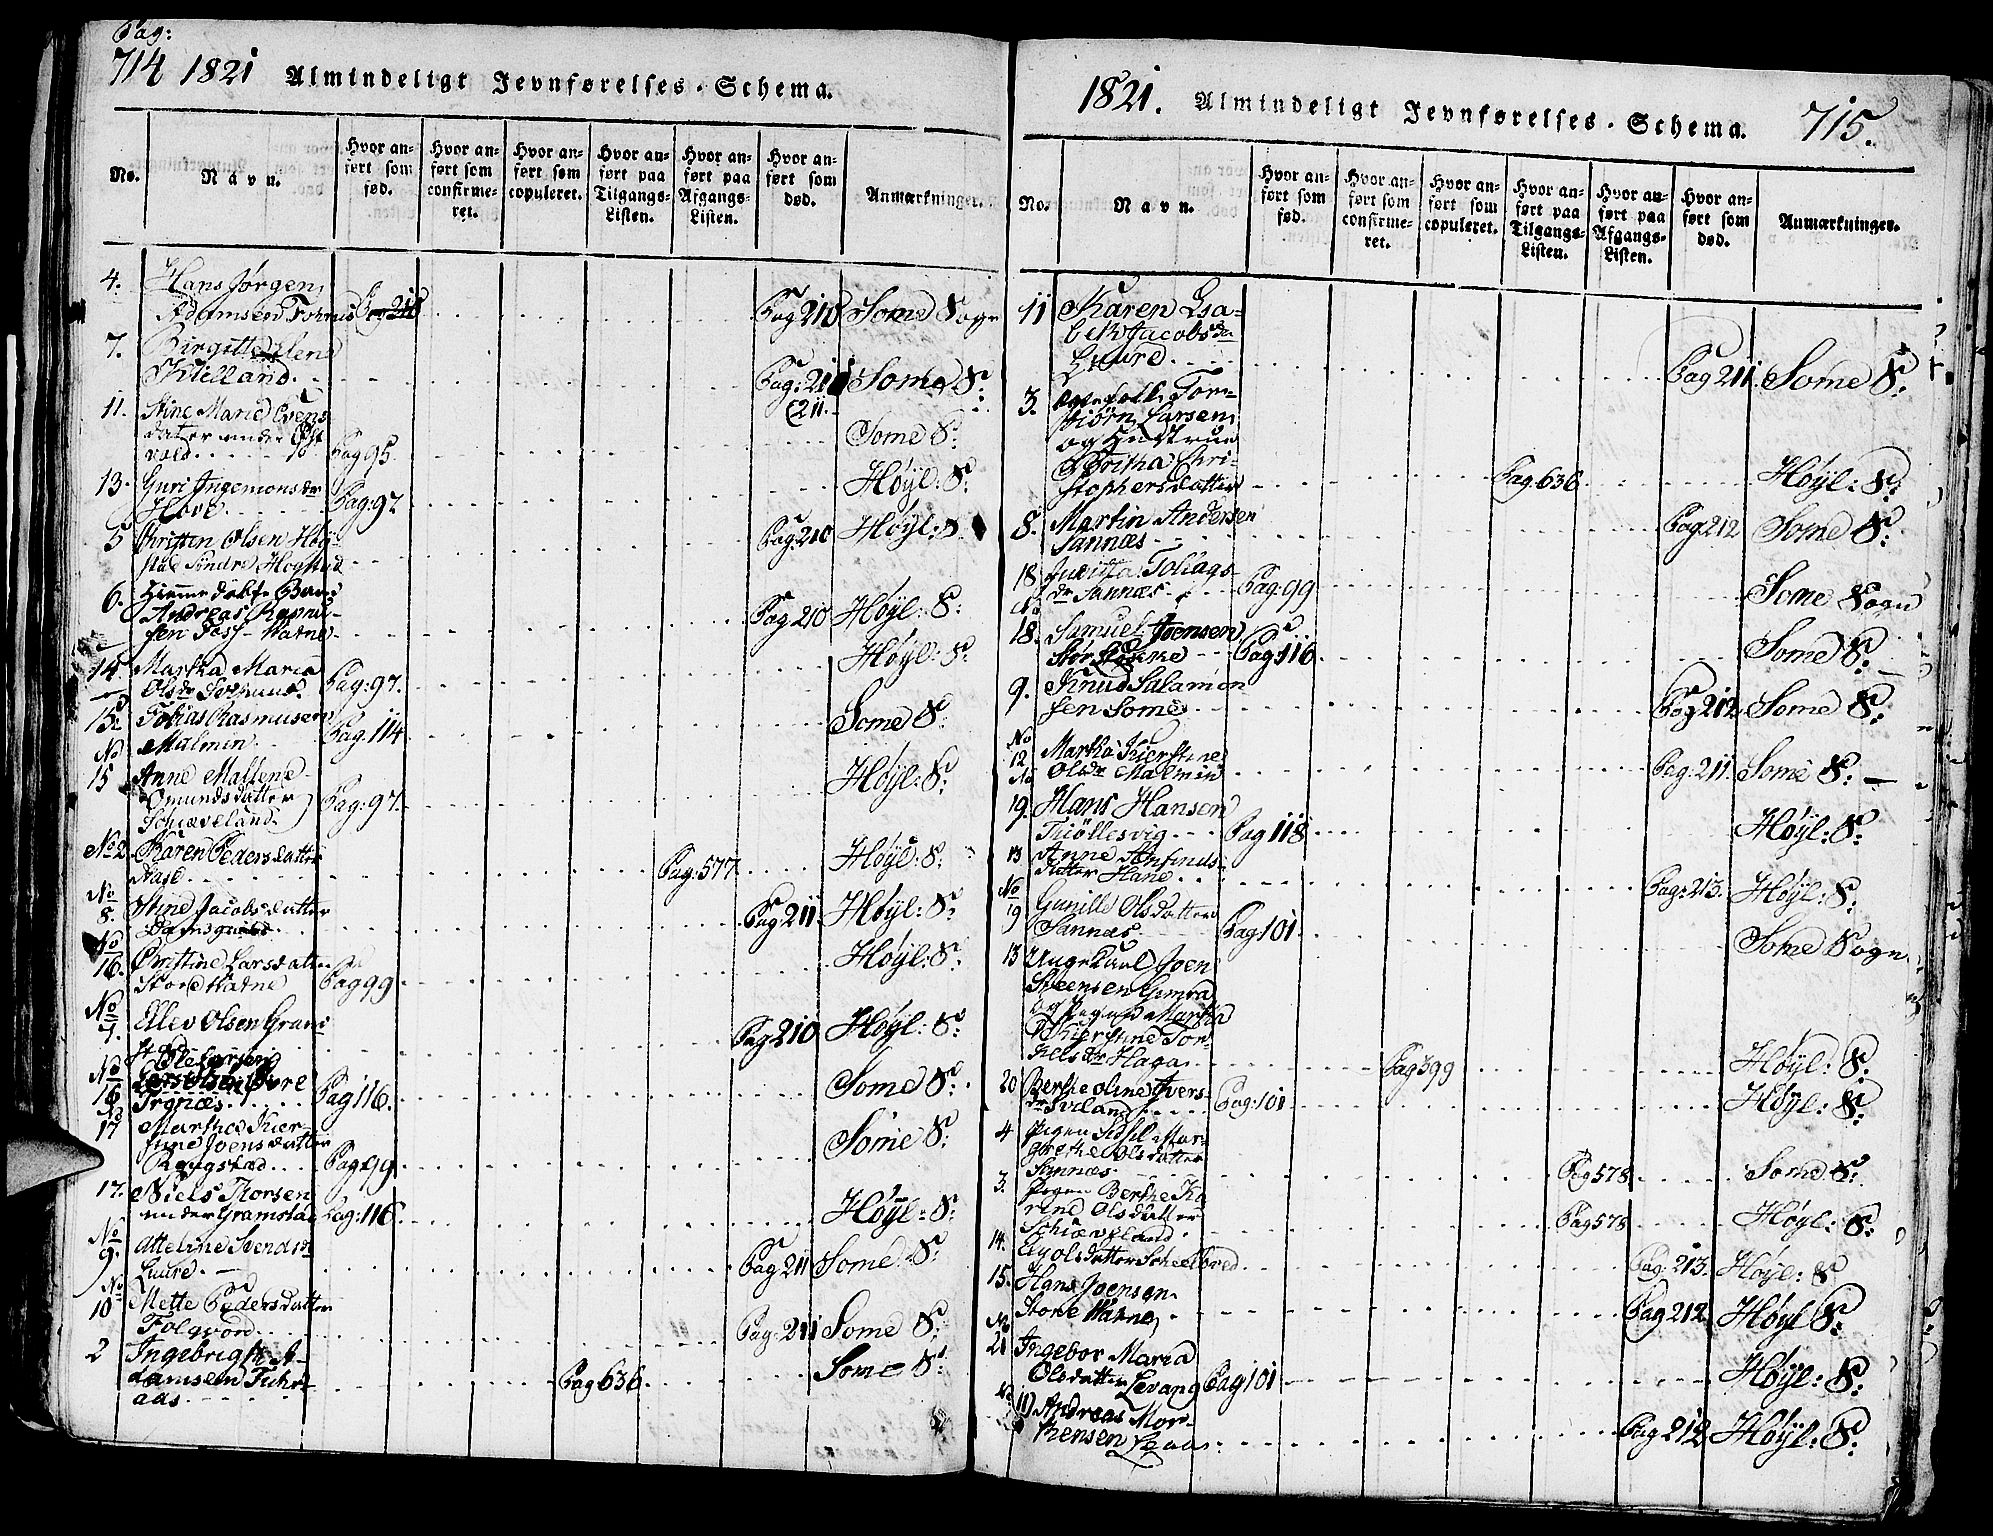 Pag:
714 1821 Almindeligt Jevnførelses-Schema.
No. Navn. Hvor anført som fød. Hvor anført som confirmeret. Hvor anført som copuleret. Hvor anført paa Tilgangs-Listen. Hvor anført paa Afgangs-Listen. Hvor anført som død. Anmærkninger.
4. Hans Jørgen
Adamsen Pag 210 Some Sogn
7. Birgitte Elene
Kielland. Pag: 211 Some S:
11. Stine Marie Svens
datter under Øst
vold. Pag 95. Some S:
13. Guri Ingemons dr
Hove Pag: 97 Høyl: S:
5 Christen Olsen Høy
stad Søndre Hogstad Pag: 210 Høyl: S:
6. Hiemedøbt Barn
Andreas Rasmu-
sen Foss-Vatne Pag 210 Høyl: S:
14. Martha Maria
Olsdr Pag: 97. Høyl: S:
15. Tobias Rasmusen
Malmin Pag. 114 Some S:
No
15 Anne Mallene
Omundsdatter
Schiæveland. Pag: 97. Høyl: S:
No 2. Karen Pedersdatter
Pag: 577 Høyl: S:
No
8. Stine Jacobsdatter
Pag 211 Høyl: S:
No
16. Christine Larsdatter
Store Vatne Pag 99 Høyl: S:
No
7. Ellev Olsen Grani
Pag 210 Høyl: S:
No
16 Pag 116. Some S:
No
17 Martha Kier-
stine Joensdatter
Pag 99 Some S:
17. Niels Thorsen
under Gramstad Pag: 116. Høyl: S:
No
9. Atteline Svendsdr
Luure. Pag 211 Some S:
No
10 Mette Pedersdatter
Folqvord. Pag: 211 Some S:
2 Ingebrigt A-
damsen Fuhr-
aas Pag 636 Some S:
1821. Almindeligt Jevnførelses-Schema. 715.
No. Navn. Hvor anført som fød. Hvor anført som confirmeret. Hvor anført som copuleret. Hvor anført paa Tilgangs-Listen. Hvor anført paa Afgangs-Listen. Hvor anført som død. Anmærkninger.
11 Karen Lsa-
beth Jacobsdr
Luure. Pag 211 Some S:
3. Ægtefolk Tor-
biørn Larsen
og Hustrue
Britha Chri-
stophersdatter Pag. 636 Høyl: S:
8. Martin Andersen
Sannæs Pag 212 Some S:
18 Juditta Tollags-
dr Sannæs. Pag: 99 Some Sogn
No
18. Samuel Joensen
Pag: 116 Some S:
9. Knud Salamon
sen Some Pag 212 Some S:
No
12 Martha Kierstine
Olsdr Malmin Pag: 211. Some S:
No
19. Hans Hansen
Tiøllesvig Pag 118 Høyl: S:
13 Anne Anfinds-
datter Hane Pag: 213. Høyl: S:
No
19 Gunille Olsdatter
Sannæs Pag 101 Some Sogn
13 Ungekarl Joen
Sveensen Gimra
og Pigen Martha
Kierstine Tor-
kelsdr Haga Pag 399 Høyl: S:
20 Berthe Oline Ivers-
dr Sviland Pag: 101 Høyl: S:
4 Pigen Sidsil Mar-
grethe Olsdatter
Sannæs Pag 578 Some S:
3. Pigen Berthe Ka
rine Olsdatter
Schiæveland Pag 578 Høyl: S:
14. Olsdatter Pag. 213. Høyl: S
15. Hans Joensen
Store Vatne Pag 212 Høyl S:
No
21 Ingebor Maria
Olsdatter Levang Pag 101 Høyl: S:
No
11) Andreas Mor-
thensen Pag 212 Høyl: S: